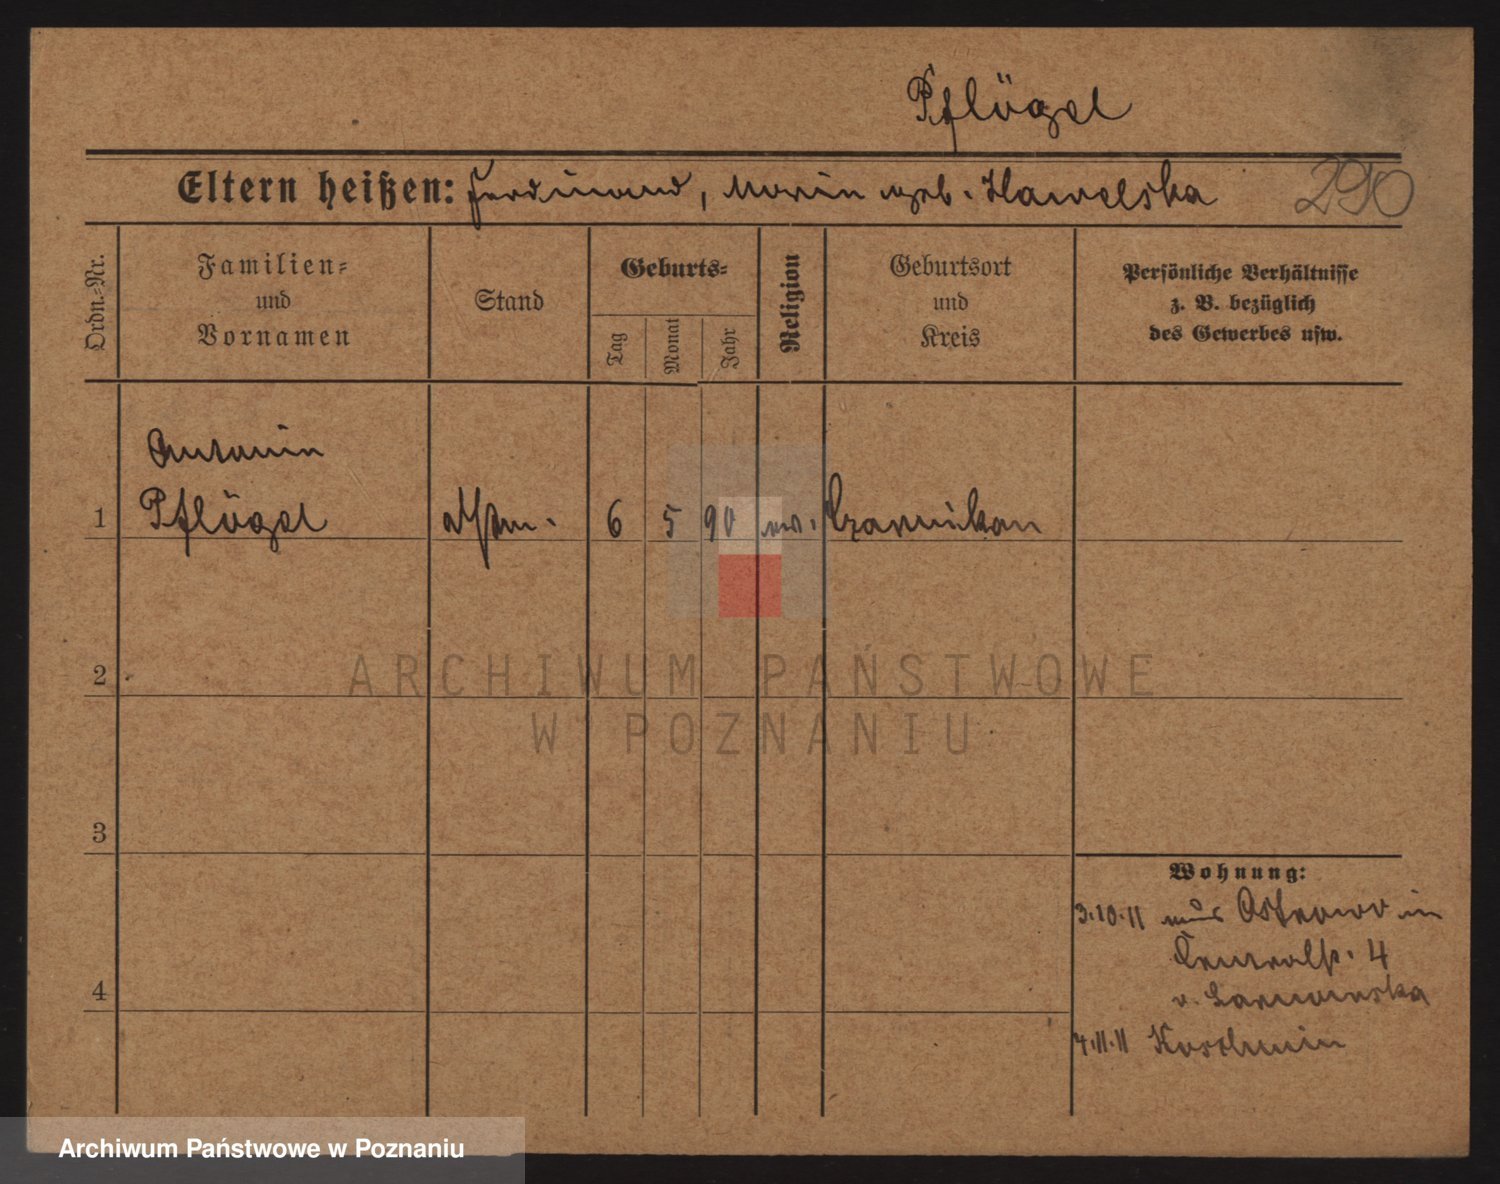 Pflögel
Eltern heißen: Ferdinand, Maria geb. Hawelska 290
Ordn.-Nr.
Familien-
und
Vornamen
Stand
Geburts-
Tag
Monat
Jahr
Religion
Geburtsort
und
Kreis
Persönliche Verhältnisse
z. B. bezüglich
des Gewerbes usw.
Antonin
1 Pflögel 6 5 90 Czarnikau
2
3
4
Wohnung:
3.10.11 aus Ostrowo in
4
4.11.11 Koschmin
ARCHIWUM PAŃSTWOWE
W POZNANIU
Archiwum Państwowe w Poznaniu